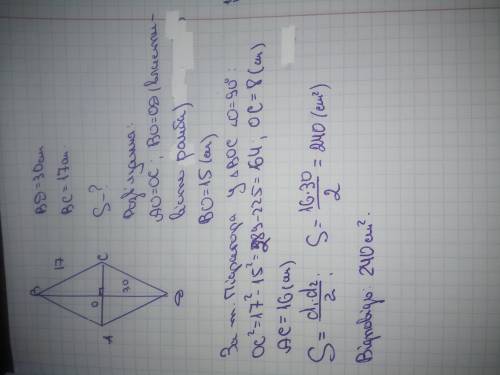 B
17
C
O
30
A
D
BD=30см
BC=17см
S-?
Розв'язання:
AO=OC; BO=OD (властивість ромба)
BO=15(см)
За т. Піфагора у △BOC ∠O=90°:
OC²=17²-15²=289-225=64; OC=8(см)
AC=16(см)
S=d₁d₂/2; S=16·30/2=240(см²)
Відповідь: 240см².